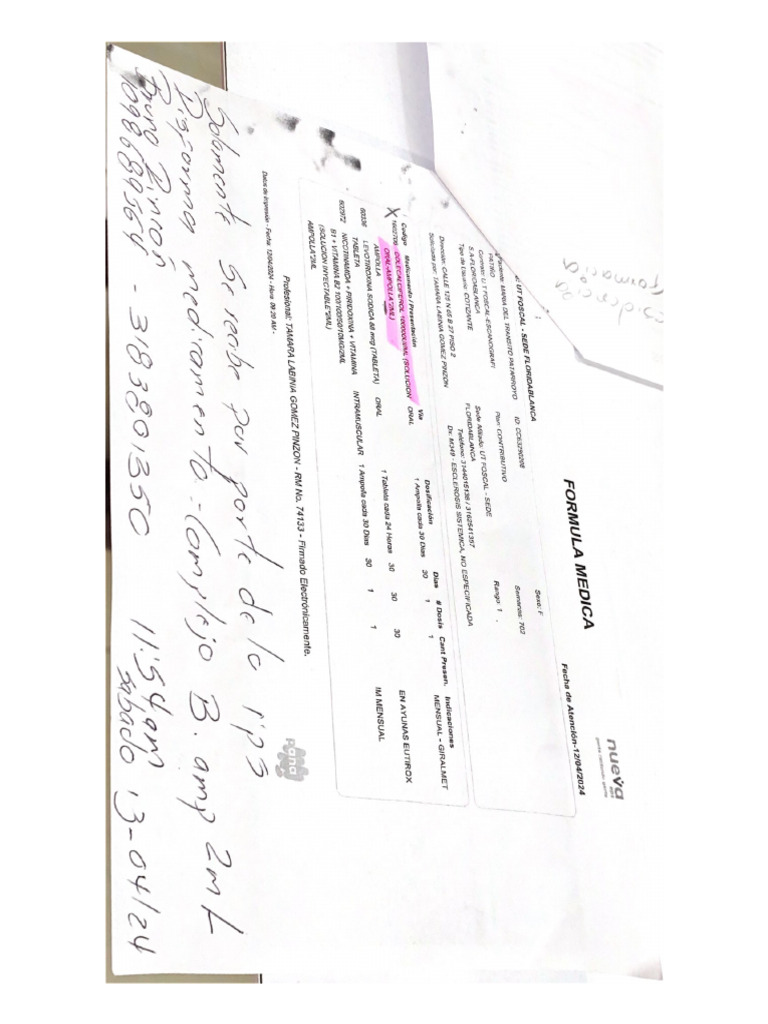 nueva
eps
FORMULA MEDICA
Fecha de Atención-12/04/2024
UT FOSCAL - SEDE FLORIDABLANCA
MARIA DEL TRANSITO PATARROYO ID: CC63290208 Sexo: F
Contrato: U.T FOSCAL-ESCANOGRAFI Plan: CONTRIBUTIVO Semanas: 702
S.A-FLORIDABLANCA Sede Afiliado: UT FOSCAL - SEDE Rango: 1
Tipo de Usuario: COTIZANTE FLORIDABLANCA
Dirección: CALLE 125 N 65 B 27 PISO 2 Teléfono: 3144015138 / 3162541357
Solicitado por: TAMARA LABINIA GOMEZ PINZON Dx: M349 - ESCLEROSIS SISTEMICA, NO ESPECIFICADA
Código Medicamento / Presentación Vía Dosificación Días # Dosis Cant Presen. Indicaciones
X COLECALCIFEROL (SOLUCION ORAL 1 Ampolla cada 30 Dias 30 1 1 MENSUAL - GIRALMET
ORAL-AMPOLLA*2ML)
AMPOLLA
60336 LEVOTIROXINA SODICA 88 mcg (TABLETA) ORAL 1 Tableta cada 24 Horas 30 30 30 EN AYUNAS EUTIROX
TABLETA
607972 NICOTINAMIDA + PIRIDOXINA + VITAMINA INTRAMUSCULAR 1 Ampolla cada 30 Dias 30 1 1 IM MENSUAL
B1 + VITAMINA B2
(SOLUCION INYECTABLE*2ML)
AMPOLLA*2ML
Profesional: TAMARA LABINIA GOMEZ PINZON - RM No. 74133 - Firmado Electrónicamente.
Datos de Impresión - Fecha: 12/04/2024 - Hora 09:20 AM -
pana
Solamente se recibe por parte de la ips
Disforma medicamento - Complejo B. amp 2mL
Rincón - 3183801350 11:54am
1098689564 sabado 13-04/24
farmacia